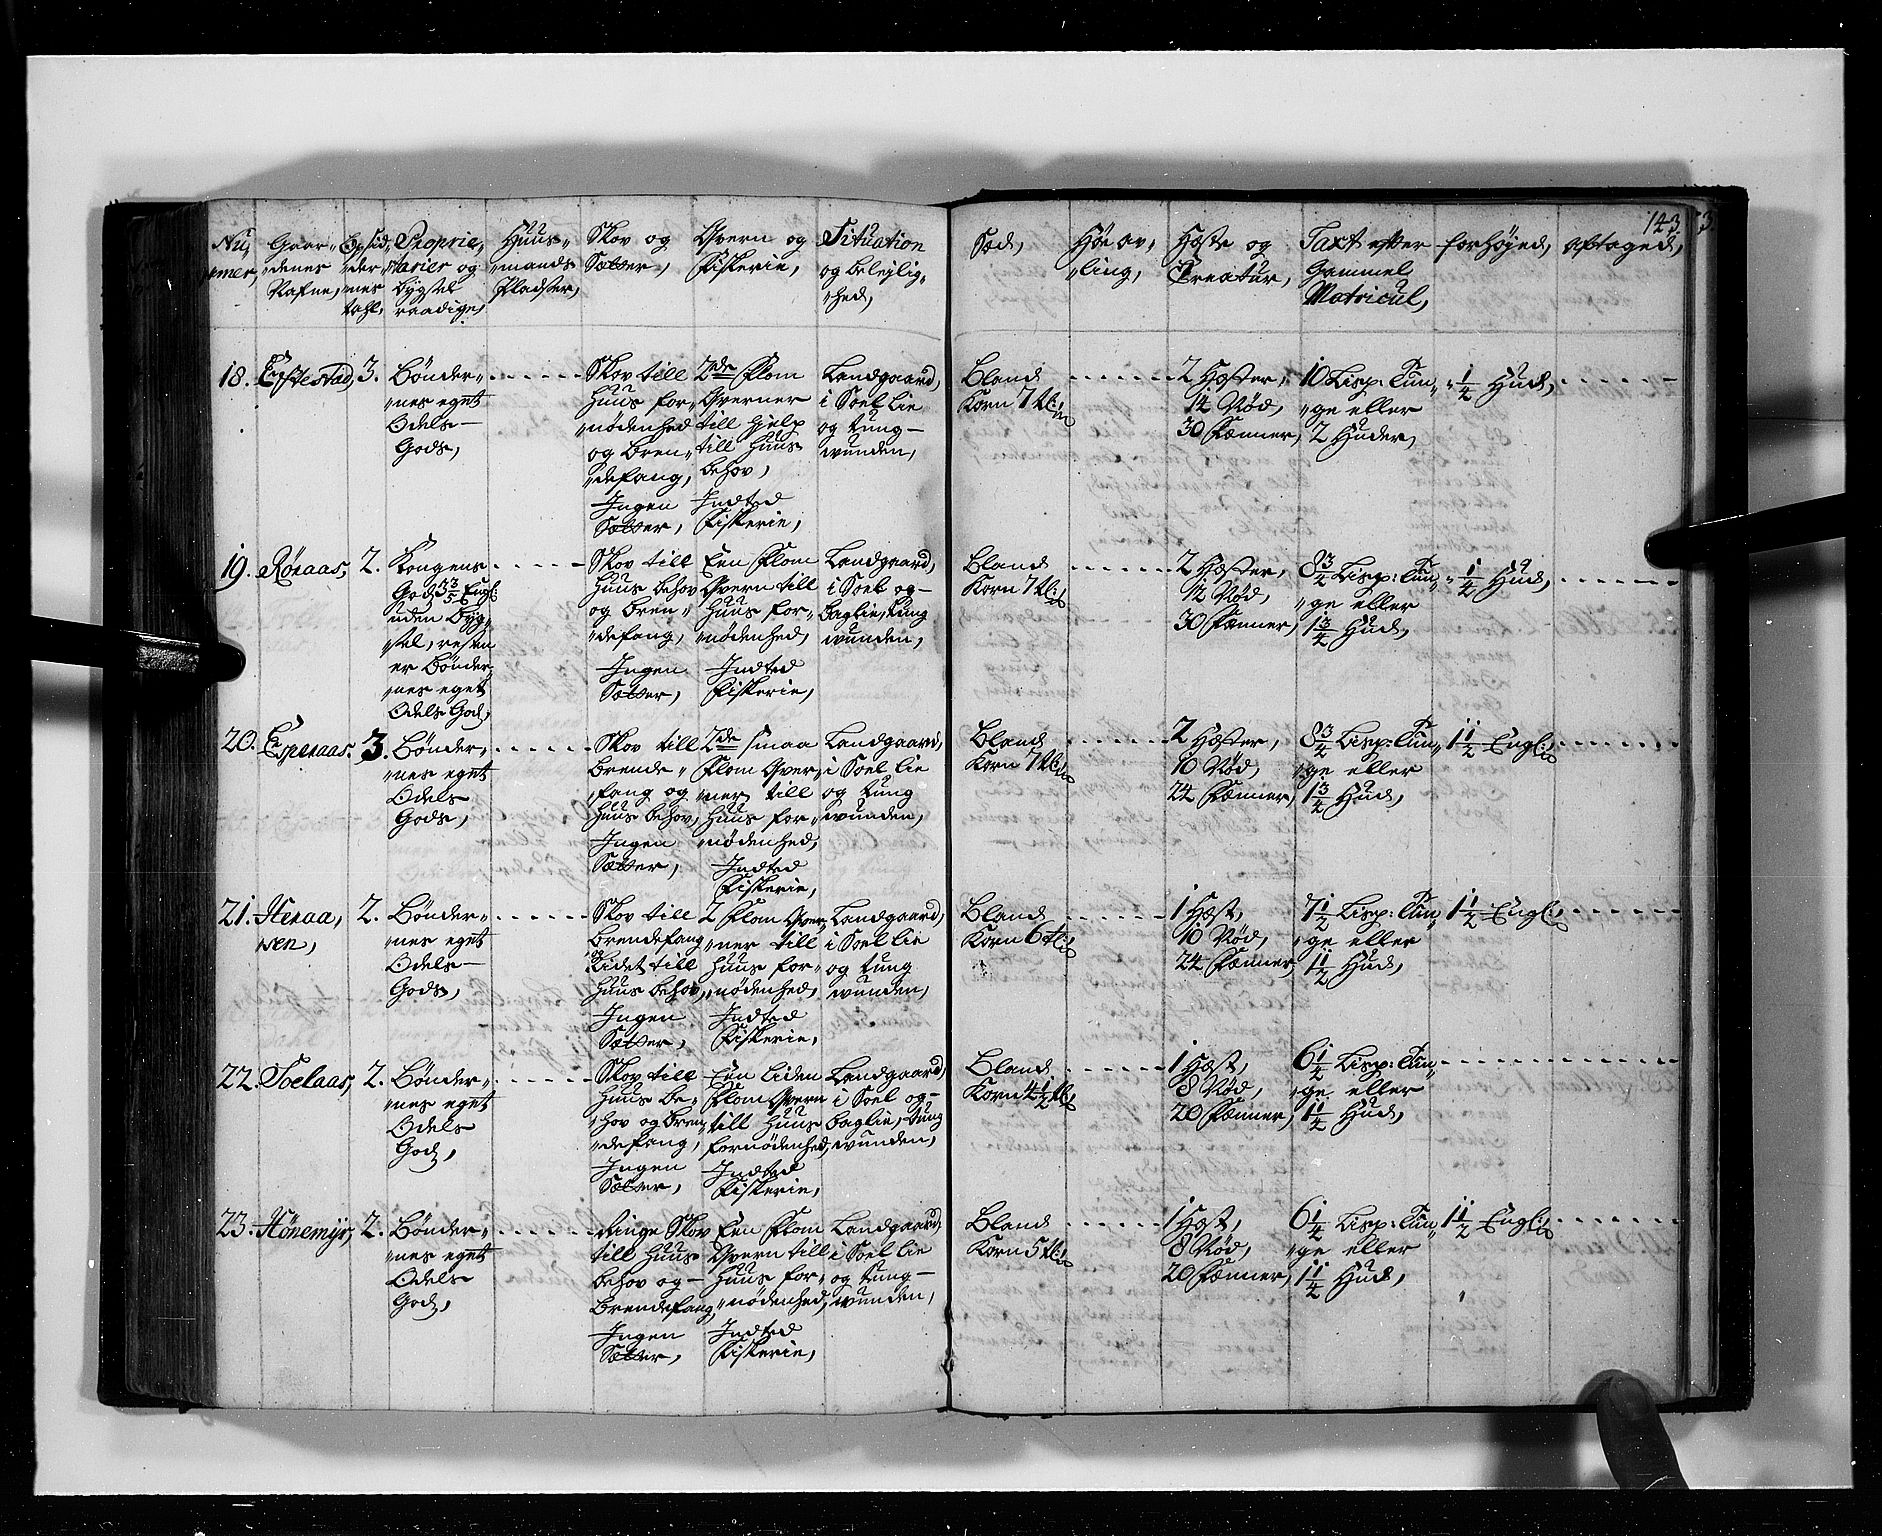 143.
Nu„
„mer,
Gaar„
„denes
Nafne,
Opsid„
„der„
„nes
tahl,
Proprie„
„tarier og
bygsel
raadige,
Huus„
„mands
Pladser,
Skov og
Sætter,
Qvern og
Fiskerie,
Situation
og belejlig„
„hed,
Sæd,
Høe av„
„ling,
Hæste og
Creatur,
Taxt efter
Gammel
Matricul,
forhøyed,
aftaged,
18. Eftestad, 3.
Bønder„
„nes eget
Odels
Gods,
Skov till
Huus for„
„nødenhed
og Bren„
„defang,
Ingen
Sætter,
2de Flom
Qverner
till hielp
till Huus
behov,
Indted
Fiskerie,
Landgaard,
i Soel lie
og tung
vunden,
Bland
Korn 7 tl:
2 Hæster,
14 Nød,
30 Fænner,
10 Lisp: Tun„
„ge eller
2 Huder,
1/4 Hud,
19. Røraas, 2.
Kongens
God 3 3/5 Engl:
uden Byg„
„sel, resten
er Bønder„
„nes eget
Odels God,
Skov till
Huus behov
og Bren„
„defang,
Ingen
Sætter,
Een Flom
Qvern till
Huus for„
„nødenhed,
Indted
Fiskerie,
Landgaard,
i Soel og
Baglie, tung
vunden,
Bland
Korn 7 tl:
2 Hæster,
12 Nød,
30 Fænner,
8 3/4 Lisp: Tun„
„ge eller
1 3/4 Hud,
1/4 Hud,
20. Eperaas, 3.
Bønder„
„nes eget
Odels
Gods,
Skov till
Brende„
fang og
Huus behov,
Ingen
Sætter,
2de smaa
Flom Qver„
„ner till
Huus for„
„nødenhed,
Indted
Fiskerie,
Landgaard,
i Soel lie
og tung
vunden,
Bland
Korn 7 tl:
2 Hæster,
10 Nød,
24 Fænner,
8 3/4 Lisp: Tun„
„ge eller
1 3/4 Hud,
1 1/2 Engl:,
21. Heraa,
ven,
2.
Bønder„
„nes eget
Odels
Gods,
Skov till
Brendefang
og Lidet till
Huus behov,
Ingen
Sætter,
2 Flom Qver„
„ner till
Huus for„
„nødenhed,
Indted
Fiskerie,
Landgaard,
i Soel lie
og tung
vunden,
Bland
Korn 6 tl:
1 Hæst,
10 Nød,
24 Fænner,
7 1/2 Lisp: Tun„
„ge eller
1 1/2 Hud,
1 1/2 Engl:,
22. Toelaas, 2.
Bønder„
„nes eget
Odels
God,
Skov till
Huus be„
„hov og Bren„
„defang,
Ingen
Sætter,
Een Liden
Flom Qvern
till Huus
fornødenhed,
Indted
Fiskerie,
Landgaard,
i Soel og
baglie, tung
vunden,
Bland
Korn 4 1/2 tl:
1 Hæst,
8 Nød,
20 Fænner,
6 1/2 Lisp: Tun„
„ge eller
1 1/4 Hud,
23. Hønemyr, 2.
Bønder„
„nes eget
Odels
God,
Ringe Skov
till Huus
behov og
Brendefang,
Ingen
Sætter,
Een Flom
Qvern till
Huus for„
„nødenhed,
Indted
Fiskerie,
Landgaard,
i Soel lie
og tung
vunden,
Bland
Korn 5 tl:
1 Hæst,
8 Nød,
20 Fænner,
6 1/4 Lisp: Tun„
„ge eller
1 1/4 Hud,
1 1/2 Engl:,